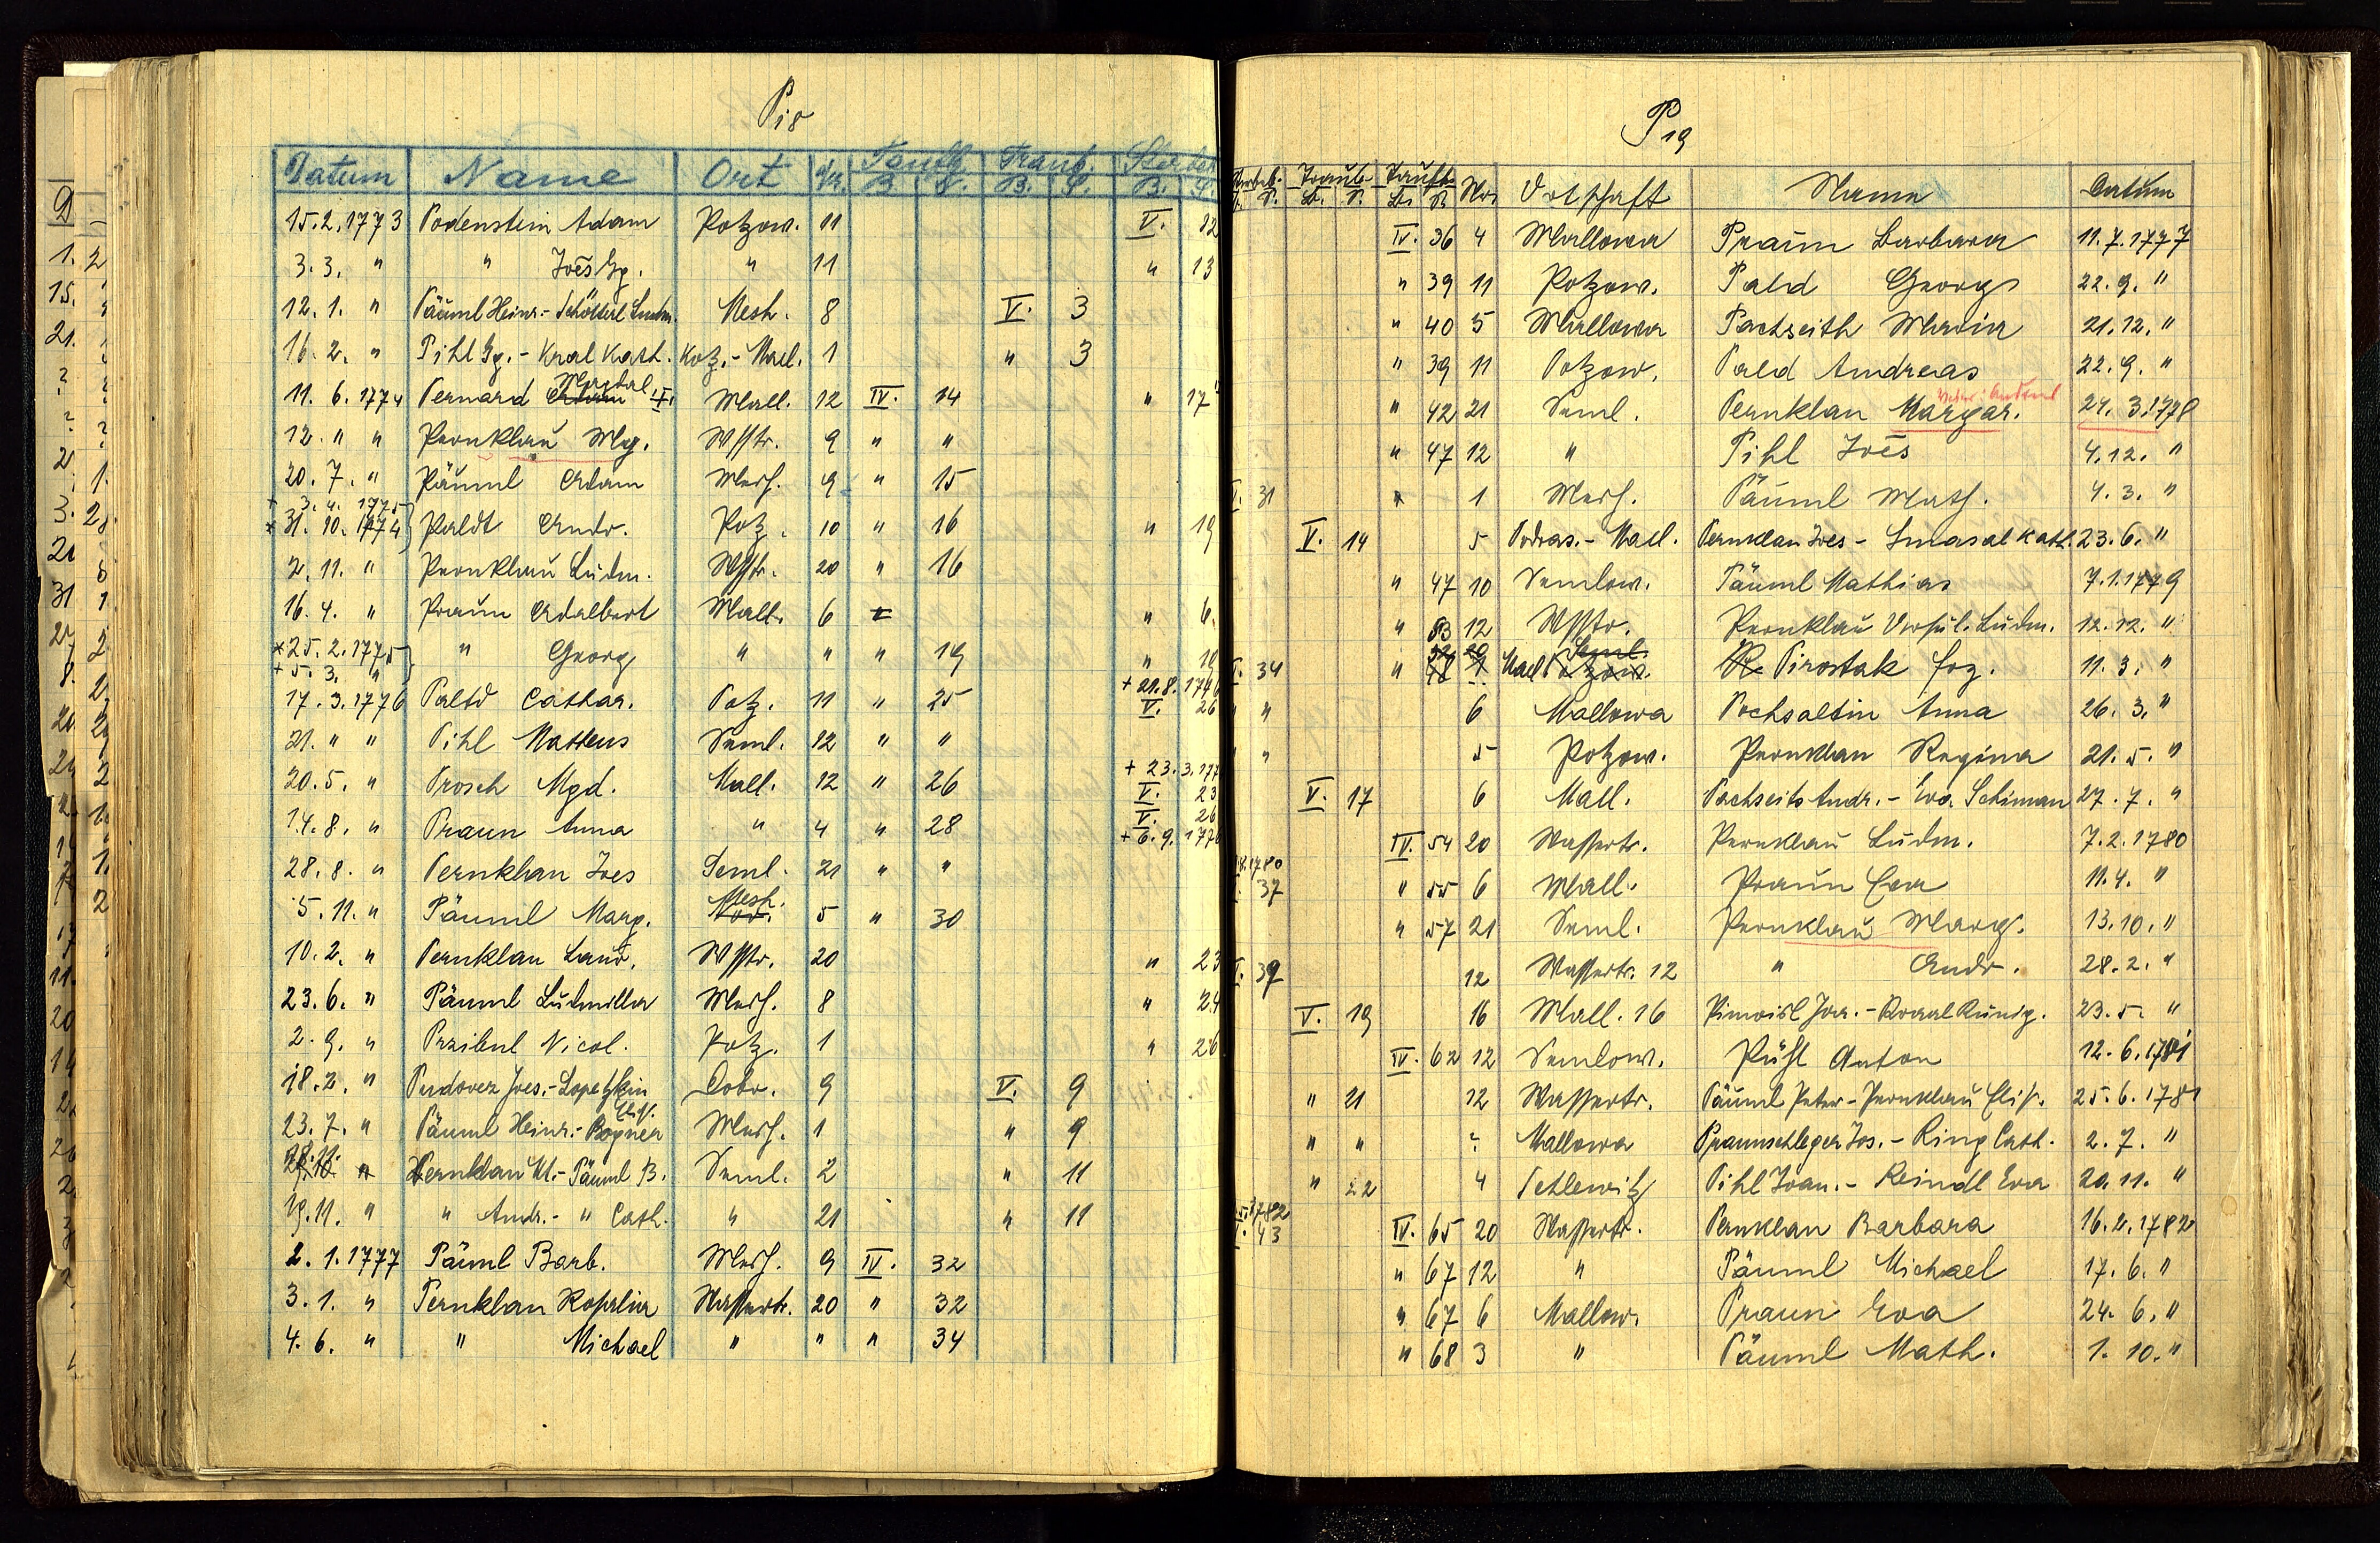 P18
Datum Name Ort Nr. Taufb. Traub. Sterbeb.
B. S. B. S. B. S.
15.2.1773 Podenstein Adam Potzow. 11 V. 12
3.3. " " Joēs Gg. " 11 " 13
12.1. " Päuml Heinr. - Schötterl Ludm. Mesh. 8 V. 3
16.2. " Pihl Gg. - Kral Kath. Kotz. - Mall. 1 " 3
Magdal.
11.6.1774 Pernard Mall. 12 IV. 14 " 17
12. " " Pernklau Mg. Wsstr. 9 " "
20.7. " Päuml Adam Mesh. 9 " 15
+ 3.4.1775
* 31.10.1774 Paldt Andr. Potz. 10 " 16 " 19
2.11. " Pernklau Ludm. Wsstr. 20 " 16
16.4. " Praun Adalbert Mall. 6 " " 6.
* 25.2.1775 " Georg " " " 19 "
+ 5.3. "
17.3.1776 Paltd Cathar. Potz. 11 " 25 V. 26
21. " " Pihl Matteus Seml. 12 " "
+ 23.3.177
20.5. " Prosch Mgd. Mall. 12 " 26 V. 23
14.8. " Praun Anna " 4 " 28 V. 26
+ 6.9.1776
28.8. " Pernklau Joes Seml. 21 " "
Mesh.
5.11. " Päuml Marg. 5 " 30
10.2. " Pernklau Laur. Wsstr. 20 " 23
23.6. " Päuml Ludmilla Mesh. 8 " 24
2.9. " Przibul Nicol. Potz. 1 " 26
18.2. " Pudoverz Joes. - Lopetzkin Dobr. 9 V. 9
23.7. " Päuml Heinr. - Bogner Mesh. 1 " 9
28.11.
Pernklau M. - Päuml B. Seml. 2 " 11
19.11. " " Andr. - " Cath. " 21 " 11
2.1.1777 Päuml Barb. Mesh. 9 IV. 32
3.1. " Pernklau Rosalia Wassertr. 20 " 32
4.6. " " Michael " " " 34
P19
Sterbeb. Traub. Taufb. Nr. Ortschaft Name Datum
IV. 36 4 Mallowa Praun Barbara 11.7.1777
" 39 11 Potzow. Pald Georg 22.9. "
" 40 5 Mallowa Pachseith Maria 21.12. "
" 39 11 Potzow. Pald Andreas 22.9. "
" 42 21 Seml. Pernklau Margar. 24.3.1778
" 47 12 " Pihl Joēs 4.12. "
V. 31 1 Mesh. Päuml Math. 4.3. "
V. 14 5 Podras. - Mall. Pernklau Joes - Smasal Kath. 23.6. "
" 47 10 Semlow. Päuml Mathias 7.1.1779
" 53 12 Wsstr. Pernklau Ursul. Ludm. 12.12. "
V. 34 " Mall Pirostak Joz. 11.3. "
" " 6 Mallowa Pochsaltin Anna 26.3. "
" " 5 Potzow. Pernklau Regina 21.5. "
V. 17 6 Mall. Pachseits Andr. - Eva Schiman 27.7. "
IV. 54 20 Wassertr. Pernklau Ludm. 7.2.1780
1780
37 " 55 6 Mall. Praun Eva 11.4. "
" 57 21 Seml. Pernklau Marg. 13.10. "
V. 39 12 Wassertr. 12 " Andr. 28.2. "
V. 19 16 Mall. 16 Pimoisl Joa. - Kraal Kunig. 23.5. "
IV. 62 12 Semlow. Pühl Anton 12.6.1781
" 21 12 Wassertr. Päuml Peter - Pernklau Elis. 25.6.1781
" " ? Mallowa Praunschleger Jos. - Ring Cath. 2.7. "
" 22 4 Schlewitz Pihl Joan. - Reindl Eva 20.11. "
1782
V. 43 IV. 65 20 Wassertr. Pernklau Barbara 16.2.1782
" 67 12 " Päuml Michael 17.6. "
" 67 6 Mallow. Praun Eva 24.6. "
" 68 3 " Päuml Math. 1.10. "